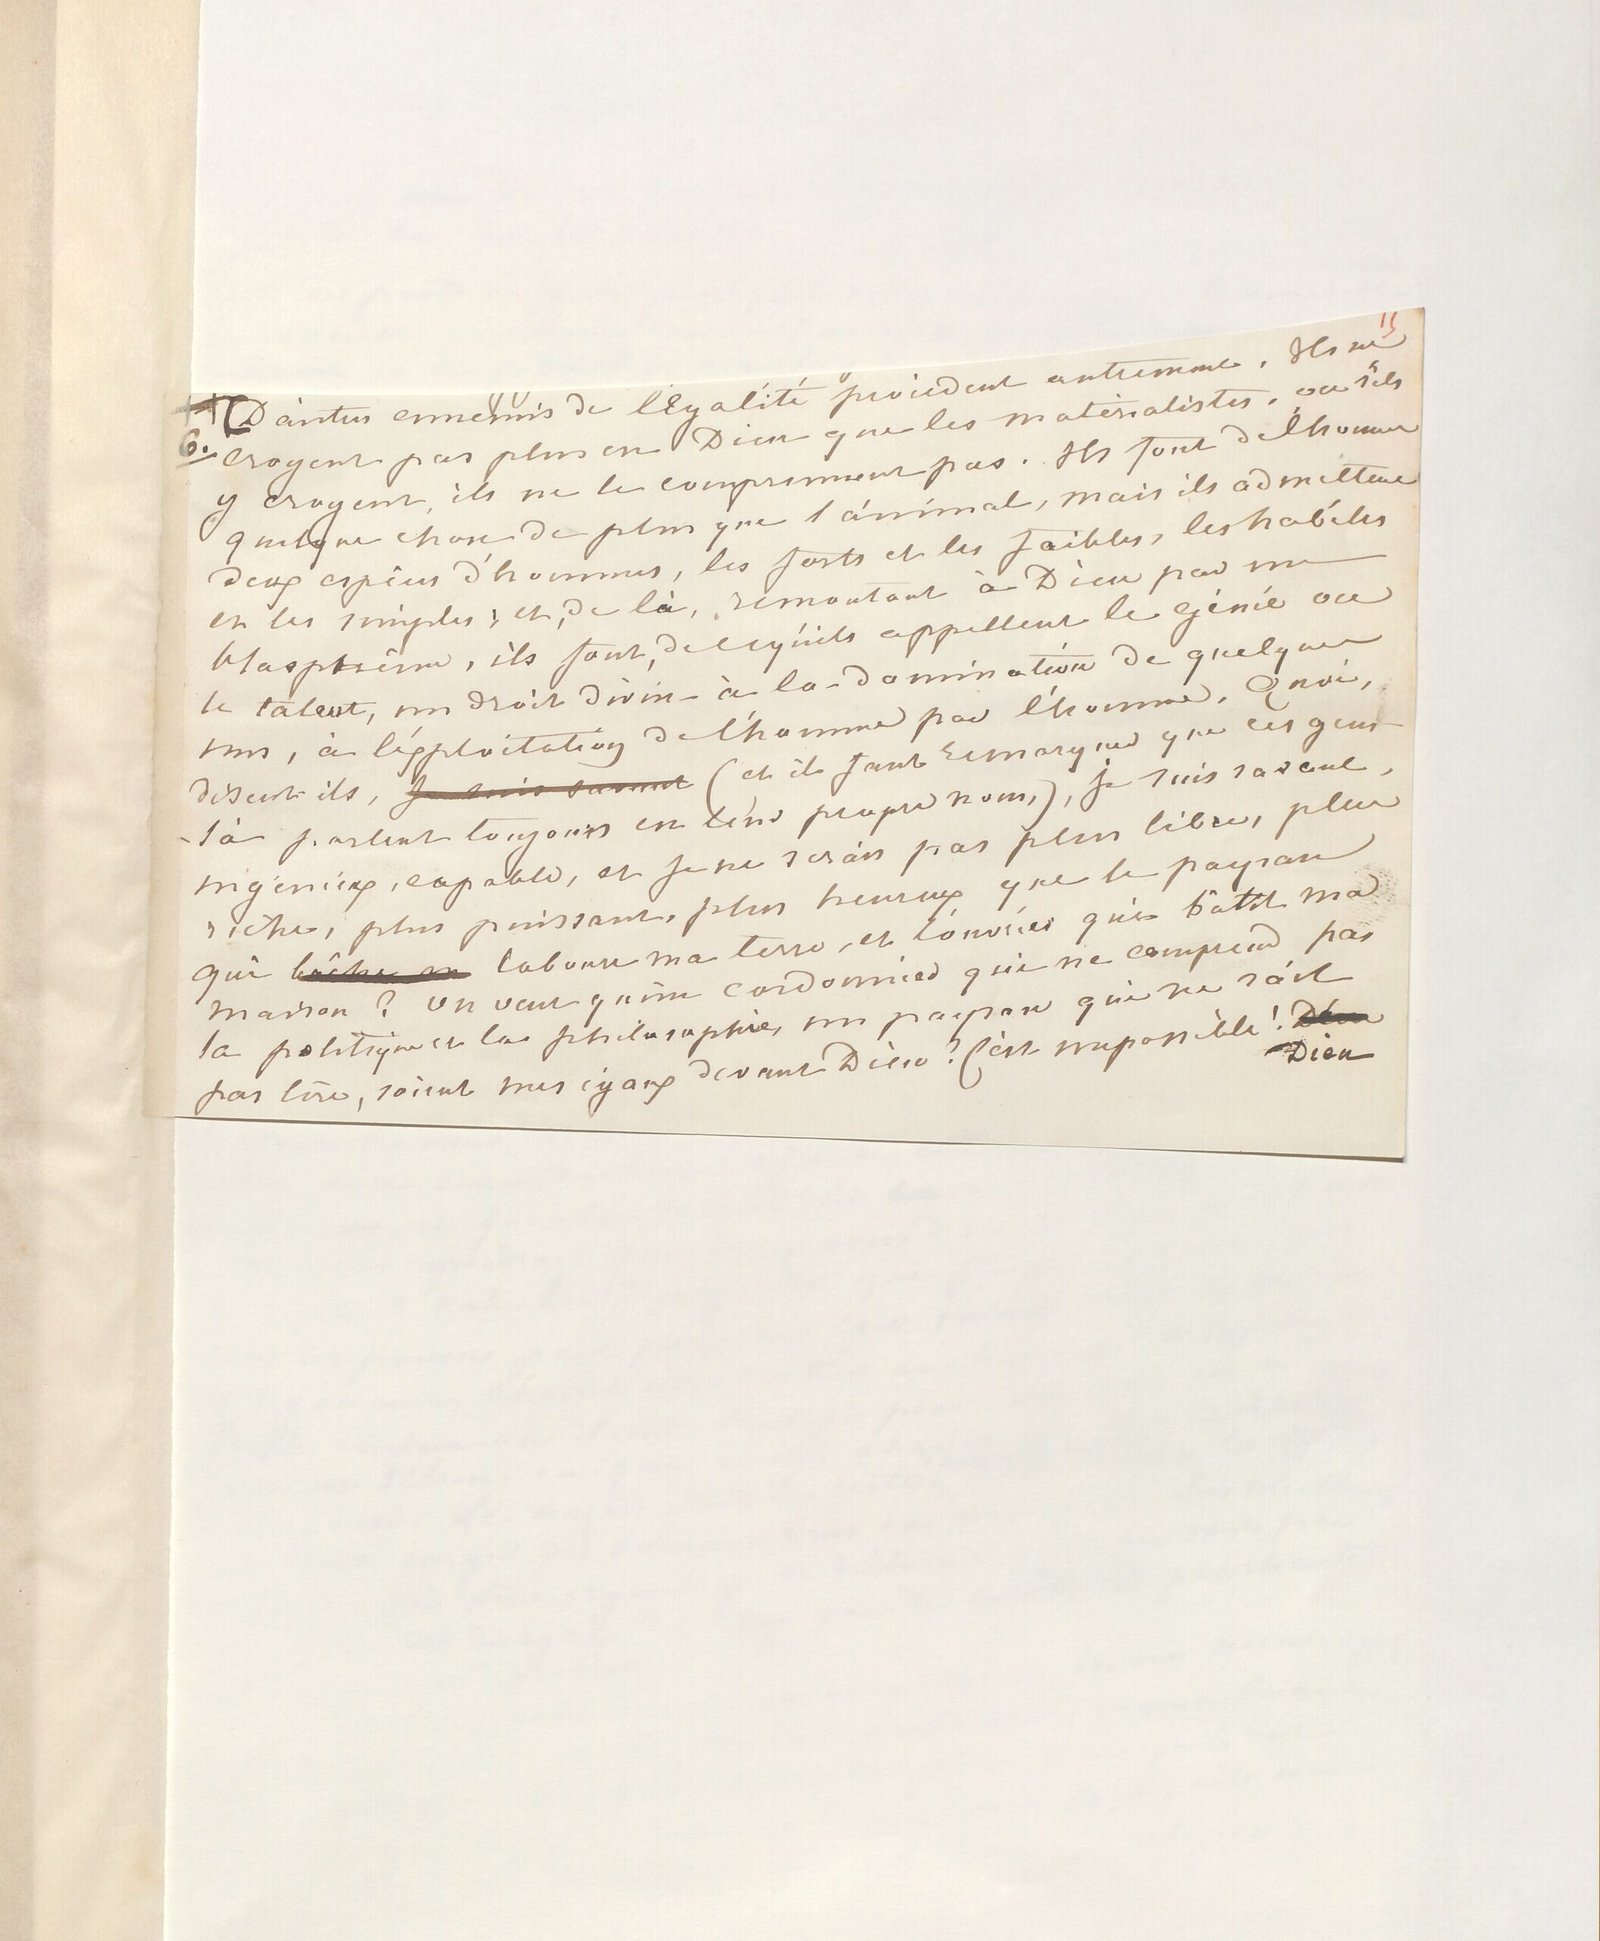 15
[D'autres ennemis de l'Egalité procèdent autrement. Ils ne
6. croyent pas plus en Dieu que les matérialistes, ou s'ils
y croyent, ils ne le comprennent pas. Ils font de l'homme
quelque chose de plus que l'animal, mais ils admettent
deux espèces d'hommes, les forts et les faibles, les habiles
et les simples; et, de là, remontant à Dieu par un
blasphème, ils font, de ce qu'ils appellent le génie ou
le talent, un droit divin à la domination de quelques
uns, à l'exploitation de l'homme par l'homme. Quoi,
disent ils, je suis savant (et il faut remarquer que ces gens
-là parlent toujours en leur propre nom,), je suis savant,
ingénieux, capable, et je ne serais pas plus libre, plus
riche, plus puissant, plus heureux que le paysan
qui bêche ma laboure ma terre, et l'ouvrier qui bâtit ma
maison? on veut qu'un cordonnier qui ne comprend pas
la politique et la philosophie, un paysan qui ne sait
pas lire, soient mes égaux devant Dieu? C'est impossible! Dieu
Dieu